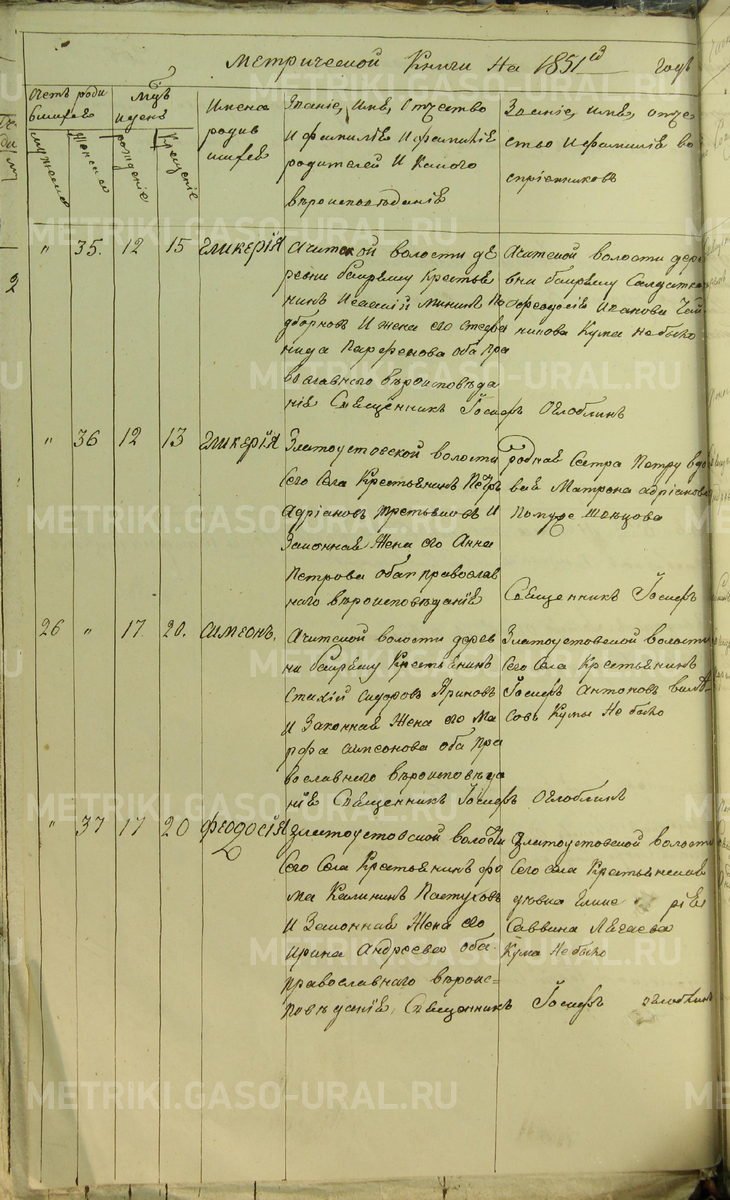 Метрической Книги на 1851 ед годъ
Счетъ роди
вшихся
мужеска
женска
Мцъ
и день
рожденіе
Крещеніе
Имена
родив
шихся
Званіе, имя, отчество
и фамилія
родителей и какого
вѣроисповѣданія
Званіе, имя, отче
ство и фамилія во
спріемниковъ
" 35. 12 15 Гликерія
Ачитской волости де
ревни Крестья
нинъ Исаакій Мининъ
и жена его Стефа
нида Парфенова оба пра
вославнаго вѣроисповѣда
нія Священникъ Іосифъ Оглоблинъ
Ачитской волости дере
вни Салдатка
Феодосія Иванова
Кума не было
" 36 12 13 Гликерія
Златоустовской волости
сего села Крестьянинъ Петръ
Адріановъ Третьяковъ и
Законная Жена его Анна
Петрова оба православ
наго вѣроисповѣданія
Родная Сестра Петру вдо
вая Матрона Адріанова
Священникъ Іосифъ
26 " 17 20. Симеонъ.
Ачитской волости дерев
ни Крестьянинъ
Стахій Сидоровъ
и Законная Жена его Ма
рфа Симеонова оба пра
вославнаго вѣроисповѣда
нія Священникъ Іосифъ Оглоблинъ
Златоустовской волости
сего села Крестьянинъ
Іосифъ Антоновъ
Кумы не было
" 37 17 20 Феодосія
Златоустовской волости
сего села Крестьянинъ Фо
ма Калининъ Пастуховъ
и Законная Жена его
Ирина Андреева оба
православнаго вѣроис=
повѣданія, Священникъ Іосифъ Оглоблинъ
Златоустовской волости
сего села Крестьянская
Саввина
Кума не было
METRIKI.GASO-URAL.RU